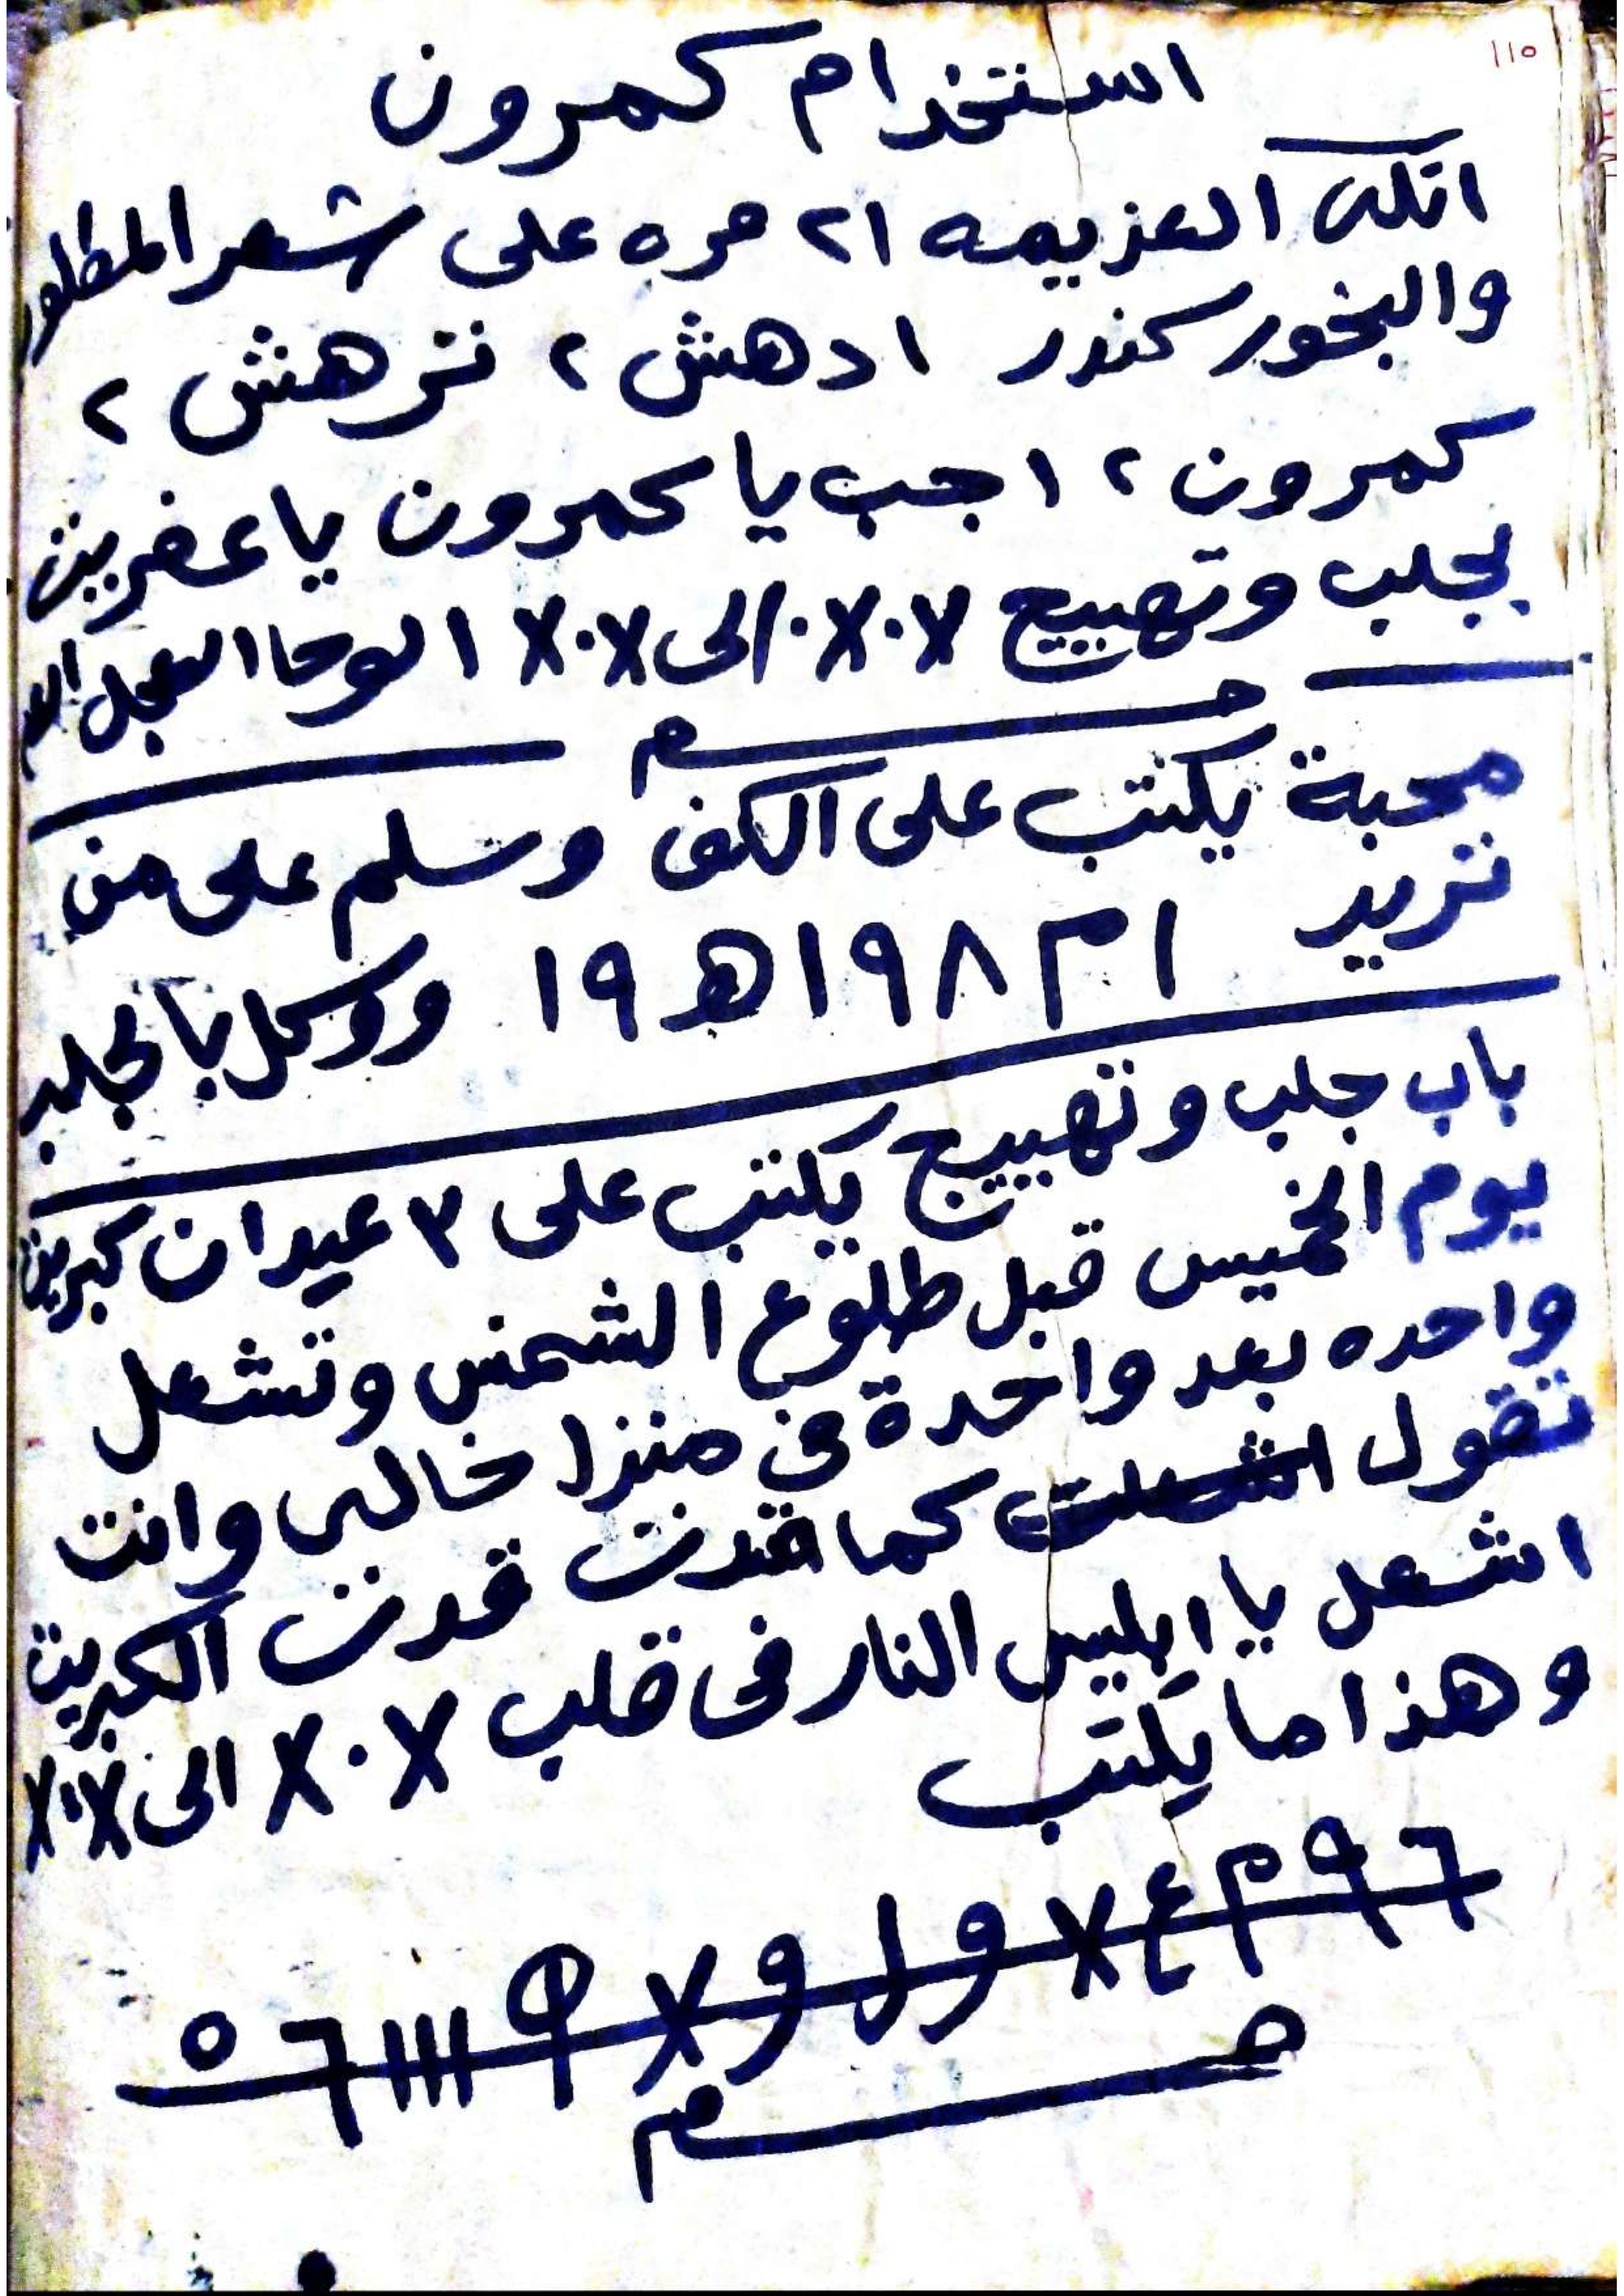 ١١٥
استخدام كمرون
اتلى العزيمه ٢١ مره على شعر المطلوب
والبخور كندر ادهش ٢ نزهش ٢
كمرون ٢ اجب يا كمرون يا عفريت
لجلب وتهييج X٠X٠ الى X٠X الوحا العجل
محبة يكتب على الكف وسلم على من
تريد ١م١٩٨ه١٩ ووكل بالجلب
باب جلب وتهييج يكتب على ٣ عيدان كبريت
يوم الخميس قبل طلوع الشمس وتشعل
واحده بعد واحدة في منزل خالى وانت
تقول كما قدت قدت الكبريت
اشعل يا ابليس النار فى قلب X٠X الى X٠X
وهذا ما يكتب
٦٩م٤X و ل و X ١١١٦٥